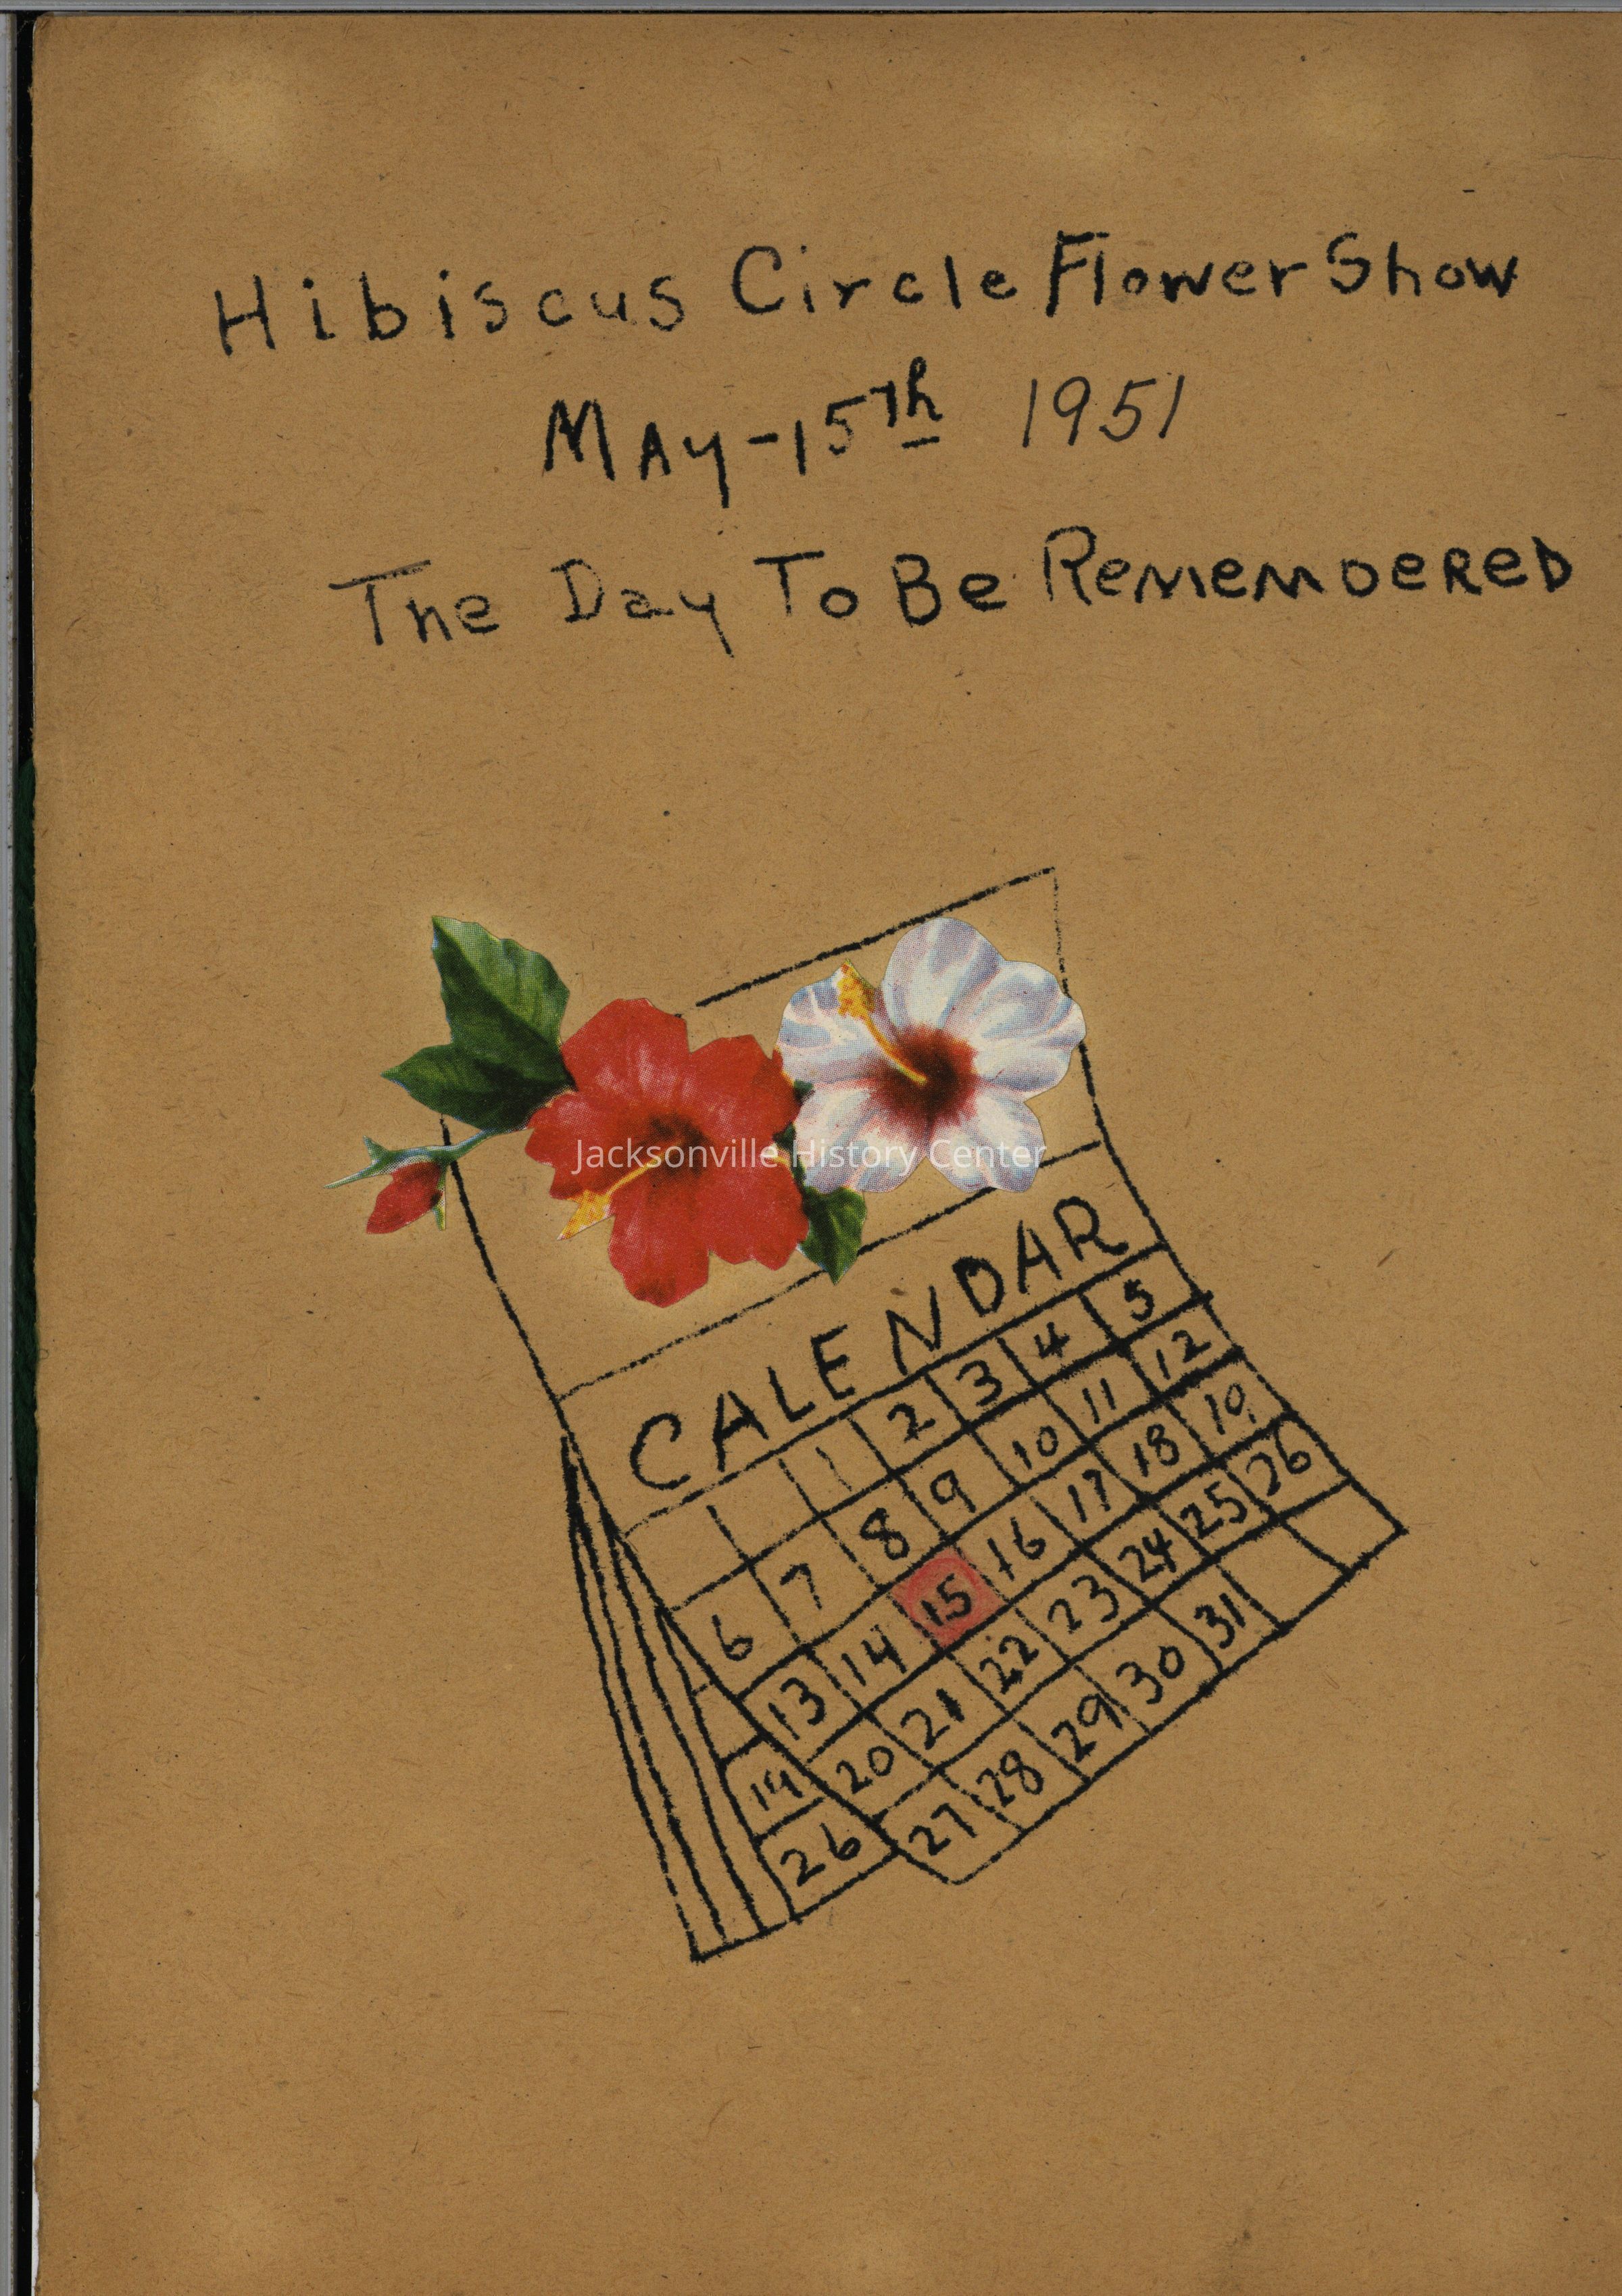 Hibiscus Circle Flower Show
May-15th 1951
The Day To Be Remembered
Jacksonville History Center
CALENDAR
1 2 3 4 5
6 7 8 9 10 11 12
13 14 15 16 17 18 19
20 21 22 23 24 25 26
27 28 29 30 31
19
26